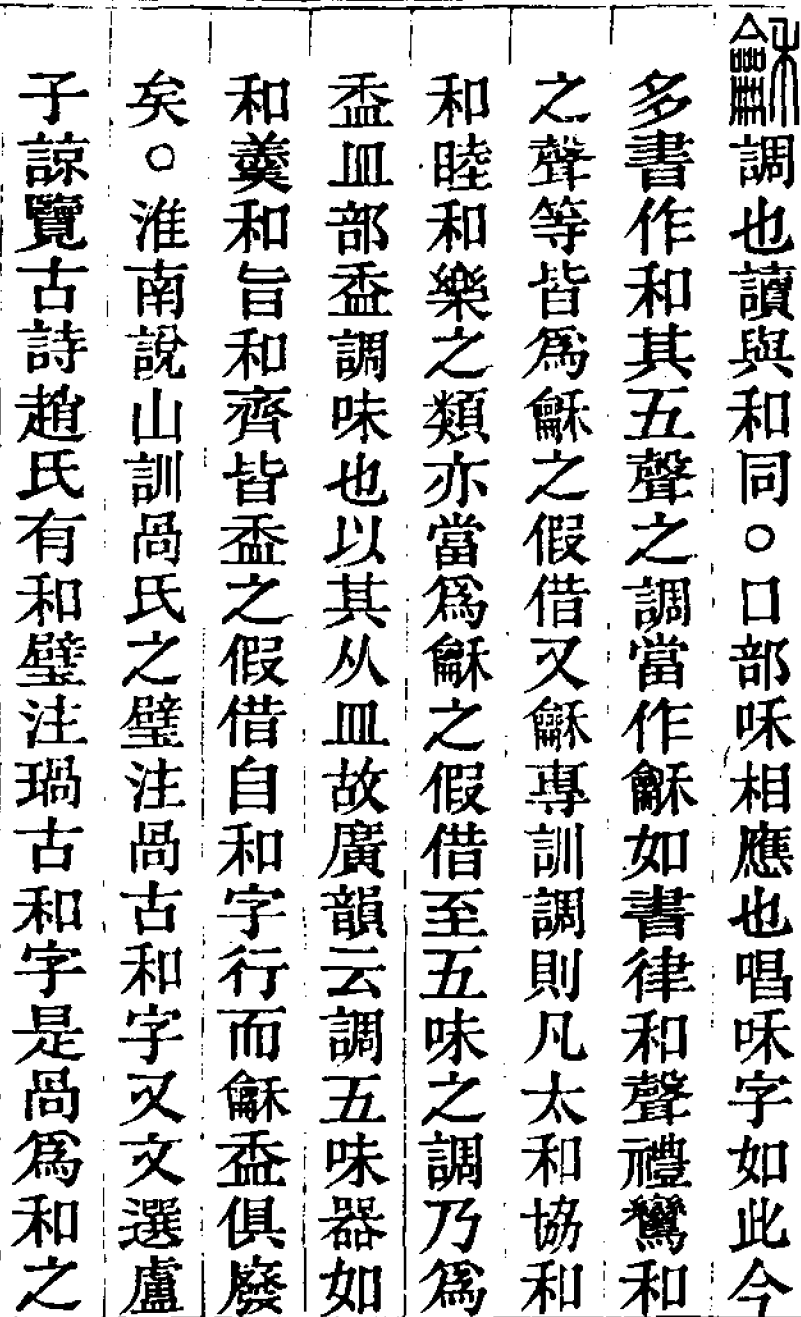 龢調也讀與和同○口部咊相應也唱咊字如此今
多書作和其五聲之調當作龢如書律和聲禮鸞和
之聲等皆爲龢之假借又龢專訓調則凡太和協和
和睦和樂之類亦當爲龢之假借至五味之調乃爲
盉皿部盉調味也以其从皿故廣韻云調五味器如
和羹和旨和齊皆盉之假借自和字行而龢盉俱廢
矣○淮南說山訓咼氏之璧注咼古和字又文選盧
子諒覽古詩趙氏有和璧注瑒古和字是咼爲和之